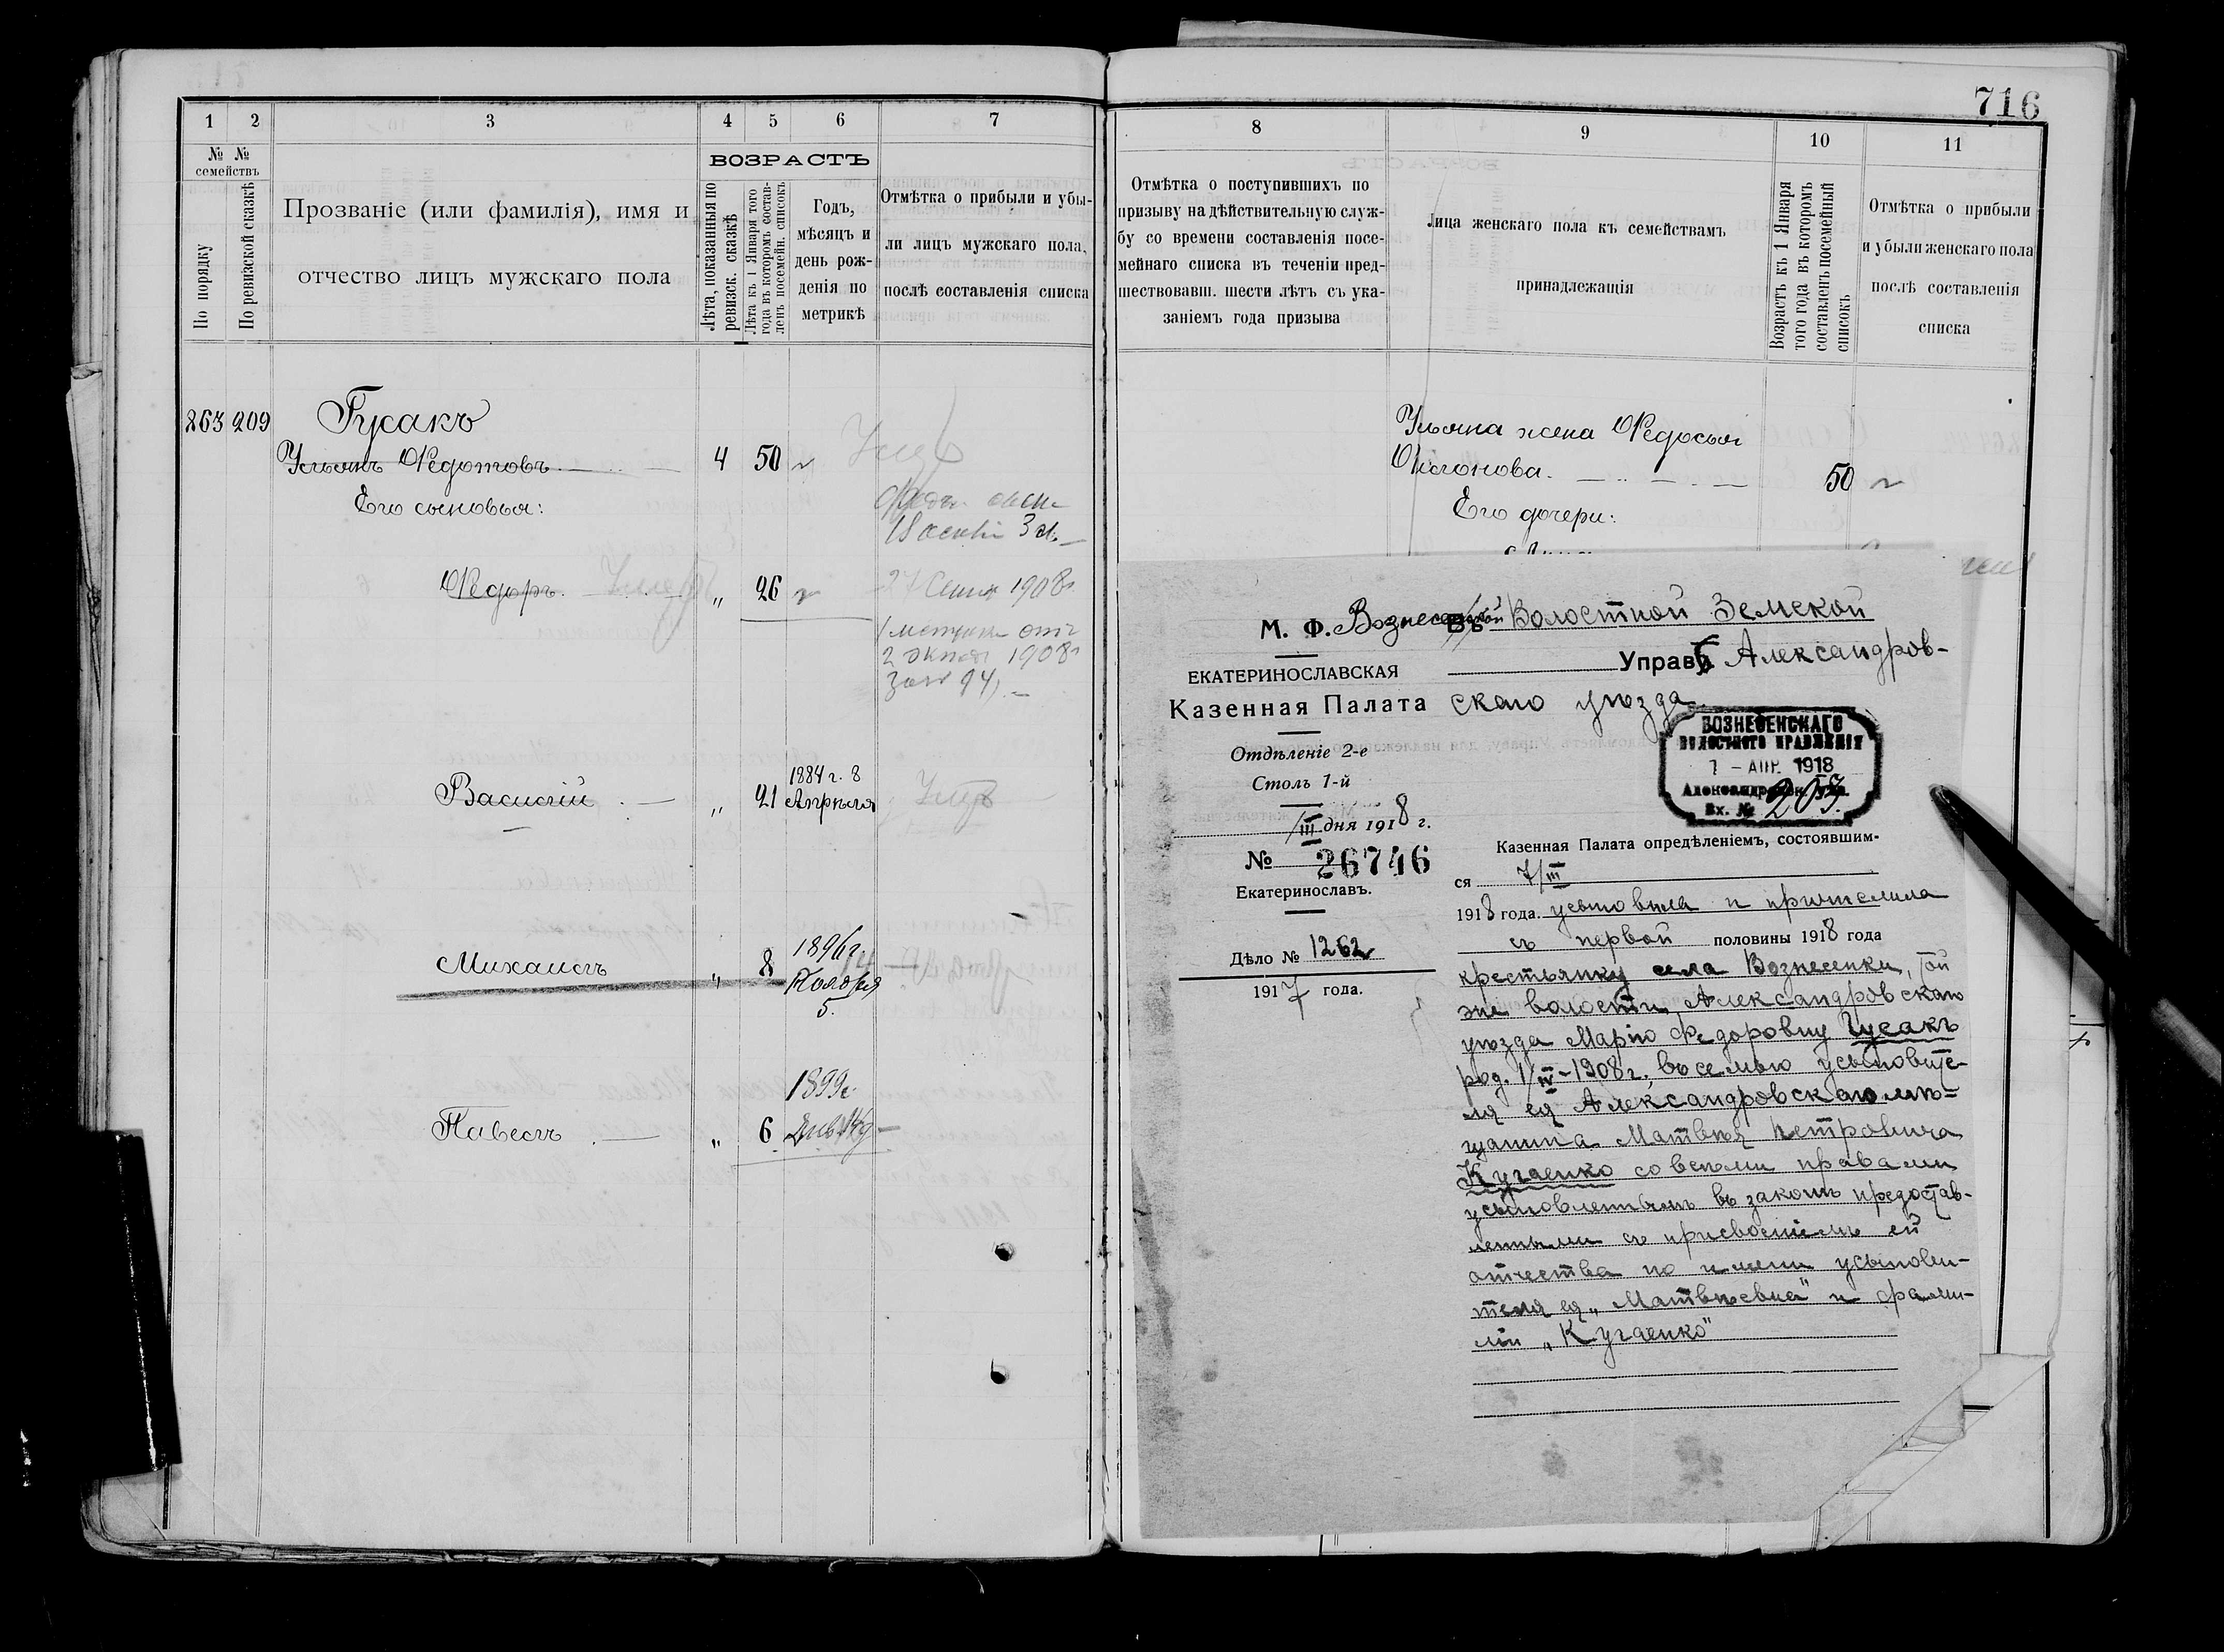 716
1 2 3 4 5 6 7
№ № семействъ
По порядку
По ревизской сказкѣ
Прозваніе (или фамилія), имя и
отчество лицъ мужскаго пола
ВОЗРАСТЪ
Лѣта, показанныя по
ревизск. сказкѣ
Лѣта къ 1 Января того
года въ которомъ состав-
ленъ посемейн. списокъ
Годъ,
мѣсяцъ и
день рож-
денія по
метрикѣ
Отмѣтка о прибыли и убы-
ли лицъ мужскаго пола,
послѣ составленія списка
263 209 Гусакъ
Ульянъ Федотовъ 4 50
Его сыновья:
Федоръ. Умеръ „ 26
27 Сент 1908г
1908г
Василій „ 21 1884 г. 8
Апрѣля
Умръ
Михаилъ „ 8 1896г
Ноября
5.
Павелъ „ 6 1899г
8 9 10 11
Отмѣтка о поступившихъ по
призыву на дѣйствительную служ-
бу со времени составленія посе-
мейнаго списка въ теченіи пред-
шествовавш. шести лѣтъ съ ука-
заніемъ года призыва
Лица женскаго пола къ семействамъ
принадлежащія
Возрастъ къ 1 Января
того года въ которомъ
составленъ посемейный
списокъ
Отмѣтка о прибыли
и убыли женскаго пола
послѣ составленія
списка
Ульяна жена Федосья
50
Его дочери:
М. Ф.
ЕКАТЕРИНОСЛАВСКАЯ
Казенная Палата
Отдѣленіе 2-е
Столъ 1-й
/III дня 1918 г.
№ 26746
Екатеринославъ.
Дѣло № 1262
1917 года.
Вознесенской Въ Волостной Земской
Управѣ Александров-
скаго уѣзда
ВОЗНЕСЕНСКАГО
ВОЛОСТНОГО ПРАВЛЕНІЯ
7 - АПР. 1918
Александровск. уѣз.
Вх. № 203.
Казенная Палата опредѣленіемъ, состоявшим-
ся 7/III
1918 года. усыновила и причислила
съ первой половины 1918 года
крестьянку села Вознесенки, той
же волости, Александровскаго
уѣзда Марію Федоровну Гусакъ
род. 1/IV-1908 г., въ семью усыновите-
ля ея Александровскаго мѣ-
щанина Матвѣя Петровича
Кугаенко со всѣми правами
усыновленнымъ въ законѣ предостав-
ленными съ присвоеніемъ ей
отчества по имени усынови-
теля ея „Матвѣевна" и фами-
ліи „Кугаенко"